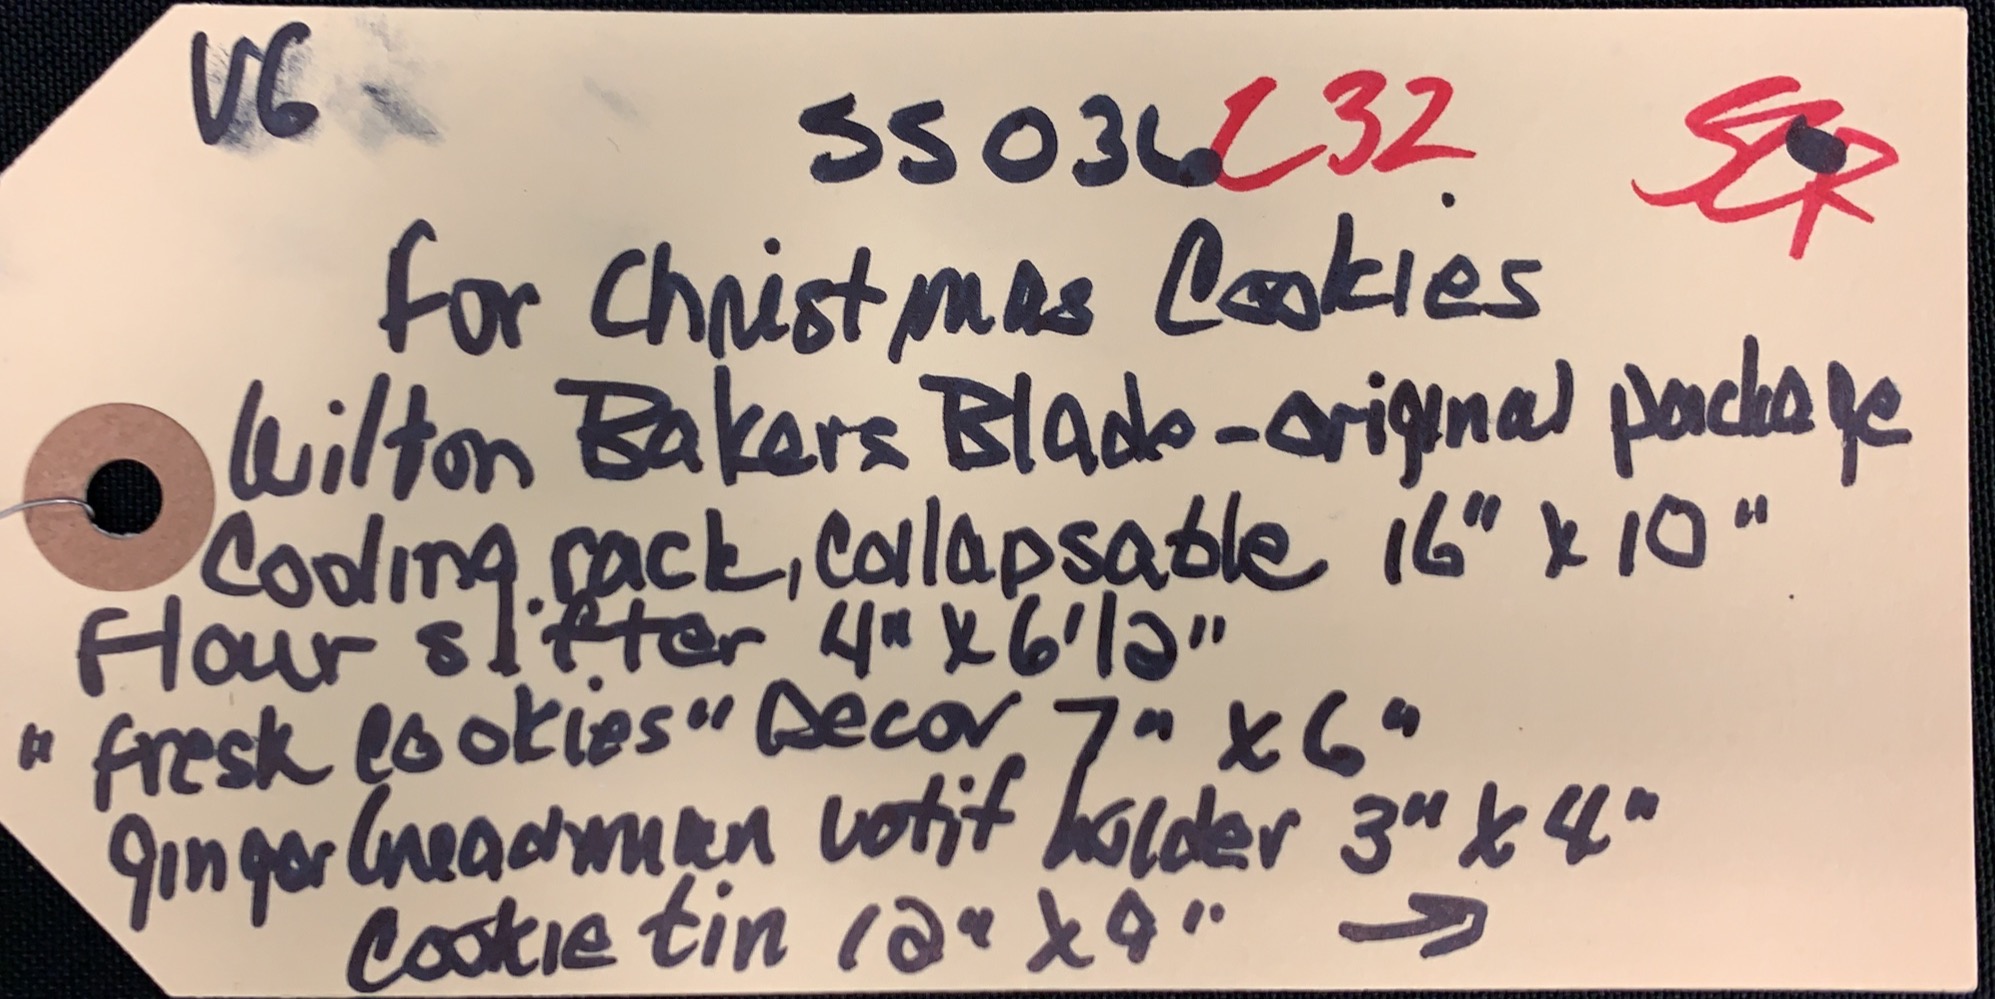 VG
SS036 L32
For Christmas Cookies
Wilton Bakers Blade - original package
Cooling rack, collapsable 16" x 10"
Flour sifter 4" x 6 1/2"
"Fresh Cookies" Decor 7" x 6"
gingerbreadman votif holder 3" x 4"
Cookie tin 12" x 9" →